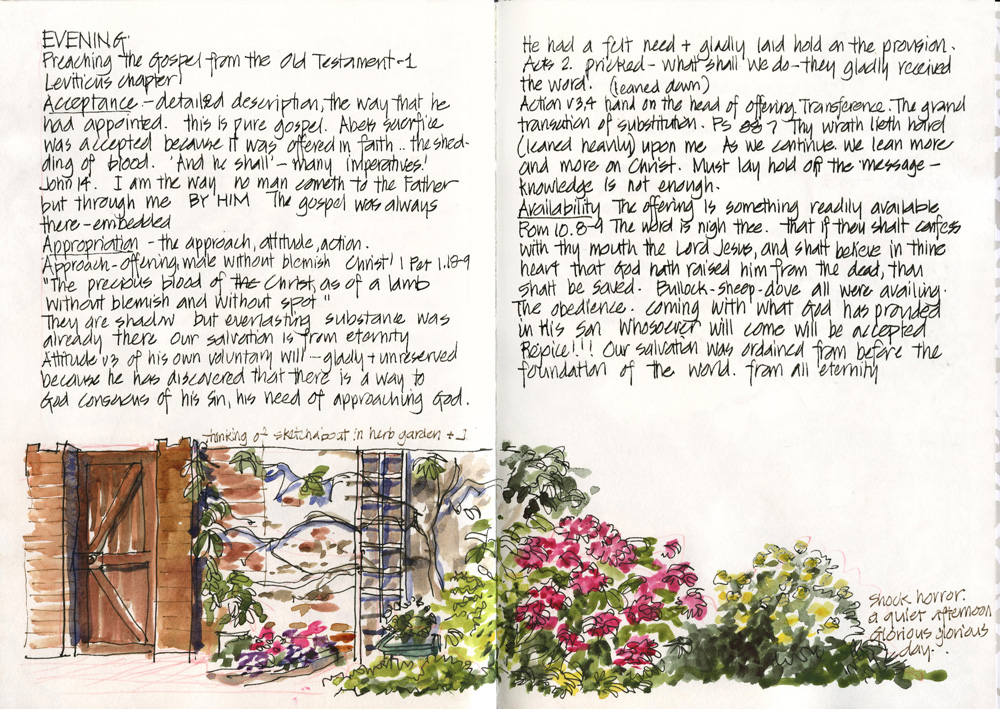 EVENING.
Preaching the Gospel from the Old Testament-1
Leviticus chapter 1
Acceptance - detailed description, the way that he
had appointed. this is pure gospel. Abels sacrifice
was accepted because it was offered in faith .. the shed-
ding of blood. 'And he shall' - many imperatives!
John 14. I am the way no man cometh to the Father
but through me BY HIM The gospel was always
there - embedded
Appropriation - the approach, attitude, action.
Approach - offering, male without blemish Christ! 1 Pet 1.18-9
"The precious blood of the Christ, as of a lamb
without blemish and without spot"
They are shadow but everlasting substance was
already there Our salvation is from eternity
Attitude v3 of his own voluntary will - gladly + unreserved
because he has discovered that there is a way to
God conscious of his sin, his need of approaching God.
thinking of sketchaboat in herb garden +
He had a felt need + gladly laid hold on the provision.
Acts 2. pricked - what shall we do - they gladly received
the word. (leaned down)
Action v3,4 hand on the head of offering Transference. The grand
transaction of substitution. Ps 88 7 Thy wrath lieth hard
(leaned heavily) upon me As we continue. we lean more
and more on Christ. Must lay hold of the message -
knowledge is not enough.
Availability The offering is something readily available
Rom 10.8-9 The word is nigh thee. that if thou shalt confess
with thy mouth the Lord Jesus, and shalt believe in thine
heart that God hath raised him from the dead, thou
shalt be saved. Bullock - sheep - dove all were availing.
The obedience. coming with what God has provided
in His Son Whosoever will come will be accepted
Rejoice!!! Our salvation was ordained from before the
foundation of the world. from all eternity
Shock horror.
a quiet afternoon
Glorious glorious
day..